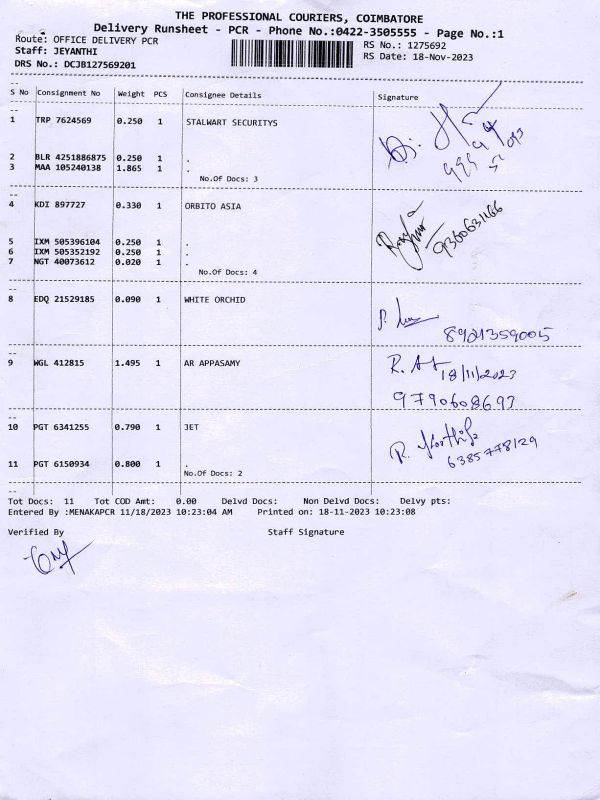 THE PROFESSIONAL COURIERS, COIMBATORE
Delivery Runsheet - PCR - Phone No.:0422-3505555 - Page No.:1
Route: OFFICE DELIVERY PCR
RS No.: 1275692
Staff: JEYANTHI
RS Date: 18-Nov-2023
DRS No.: DCJB127569201
S No Consignment No Weight PCS Consignee Details Signature
1 TRP 7624569 0.250 1 STALWART SECURITYS
2 BLR 4251886875 0.250 1 .
3 MAA 105240138 1.865 1 .
No.Of Docs: 3
4 KDI 897727 0.330 1 ORBITO ASIA
9360631166
5 IXM 505396104 0.250 1 .
6 IXM 505352192 0.250 1 .
7 NGT 40073612 0.020 1 .
No.Of Docs: 4
8 EDQ 21529185 0.090 1 WHITE ORCHID
8921359005
9 WGL 412815 1.495 1 AR APPASAMY
18/11/2023
9790608693
10 PGT 6341255 0.790 1 JET
6385778129
11 PGT 6150934 0.800 1 .
No.Of Docs: 2
Tot Docs: 11 Tot COD Amt: 0.00 Delvd Docs: Non Delvd Docs: Delvy pts:
Entered By :MENAKAPCR 11/18/2023 10:23:04 AM Printed on: 18-11-2023 10:23:08
Verified By Staff Signature